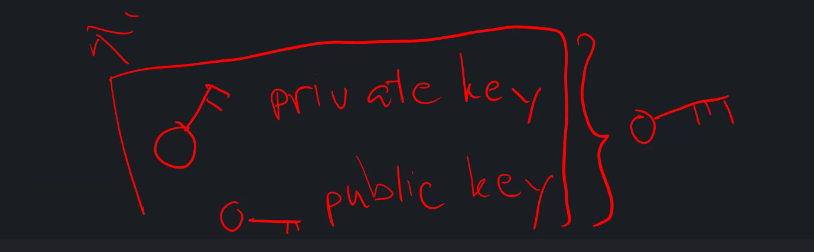 private key
public key